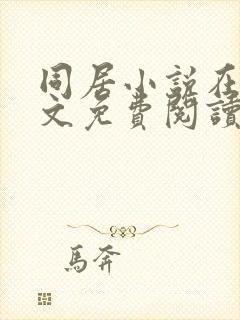 同居小説在
文免費閱讀
馬奔